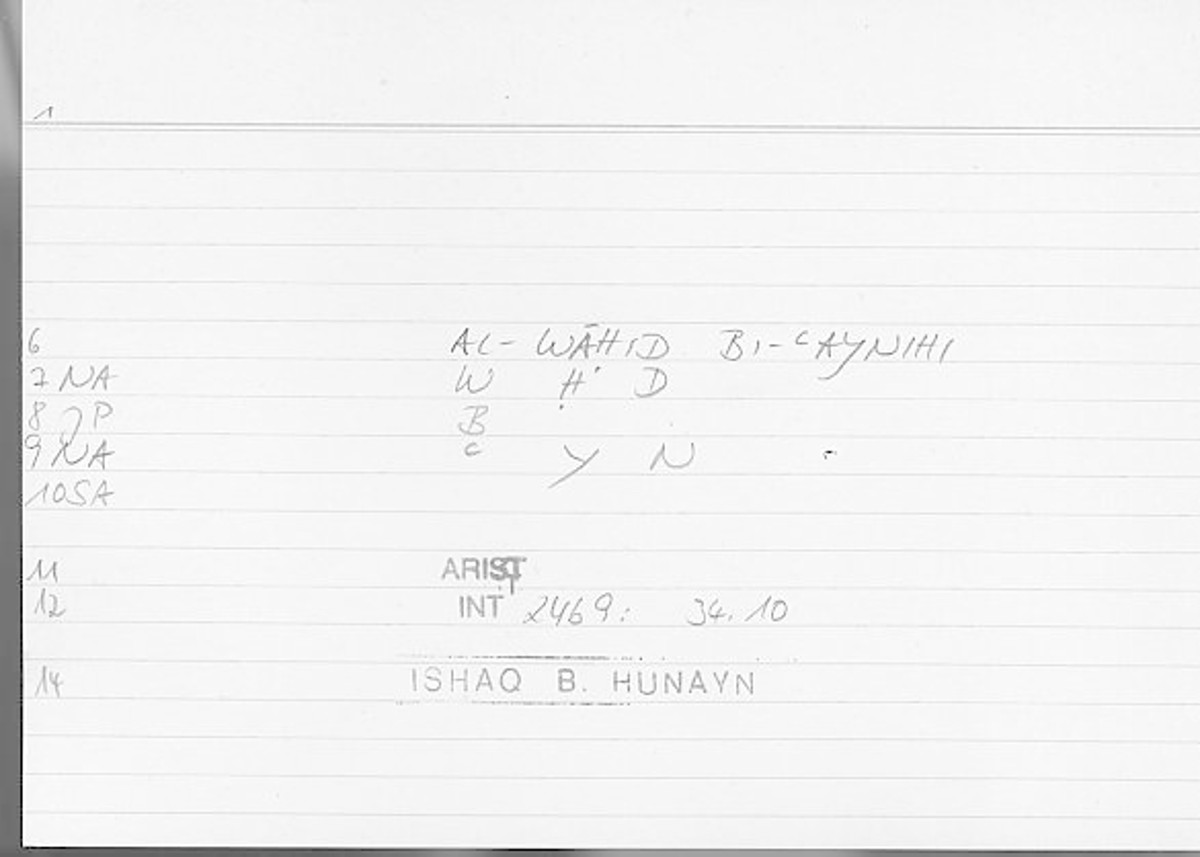 1
6 AL-WĀHID BI-ʿAYNIHI
7 NA W Ḥ D
8 )P B
9 NA ʿ Y N
10 SA
11 ARIST
12 INT 2469: 34.10
14 ISHAQ B. HUNAYN